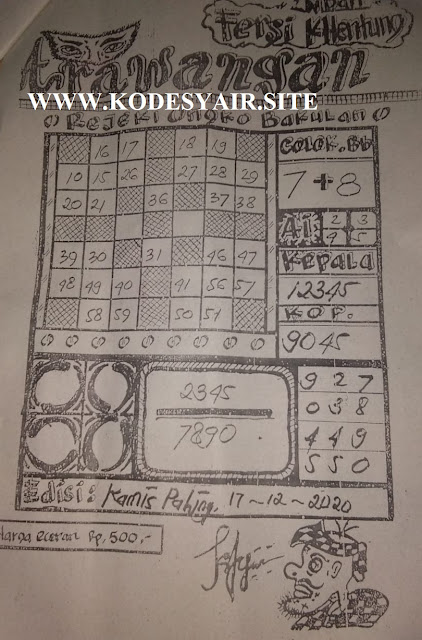 Fersi K.Hantung
trawangan
WWW.KODESYAIR.SITE
Rejeki Ongko Bakulan
16 17 18 19
10 15 26 27 28 29
20 21 36 37 38
39 30 31 46 47
48 49 40 41 56 57
58 59 50 51
COLOK.BB
7+8
Ai: 2 3
4 5
Kepala
12345
KOP.
9045
2345
7890
927
038
449
550
Edisi: Kamis Pahing, 17-12-2020
Harga eceran Rp, 500,-